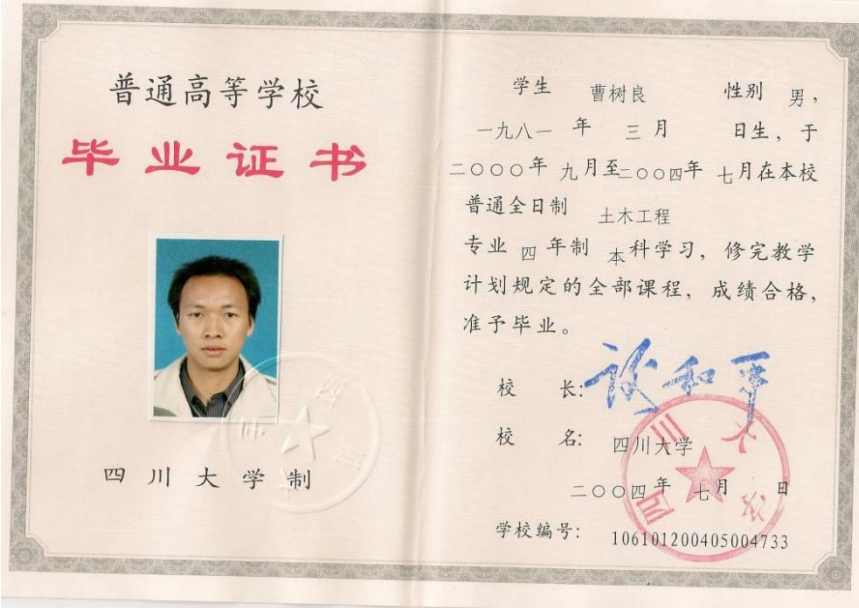 普通高等学校
毕业证书
四川大学制
学生 曹树良 性别 男，
一九八一 年 三 月 日生，于
二〇〇〇年 九 月至二〇〇四年 七月在本校
普通全日制 土木工程
专业 四 年制 本科学习，修完教学
计划规定的全部课程，成绩合格，
准予毕业。
校 长：
校 名：四川大学
二〇〇四 年 七 月 日
学校编号：106101200405004733
四川大学